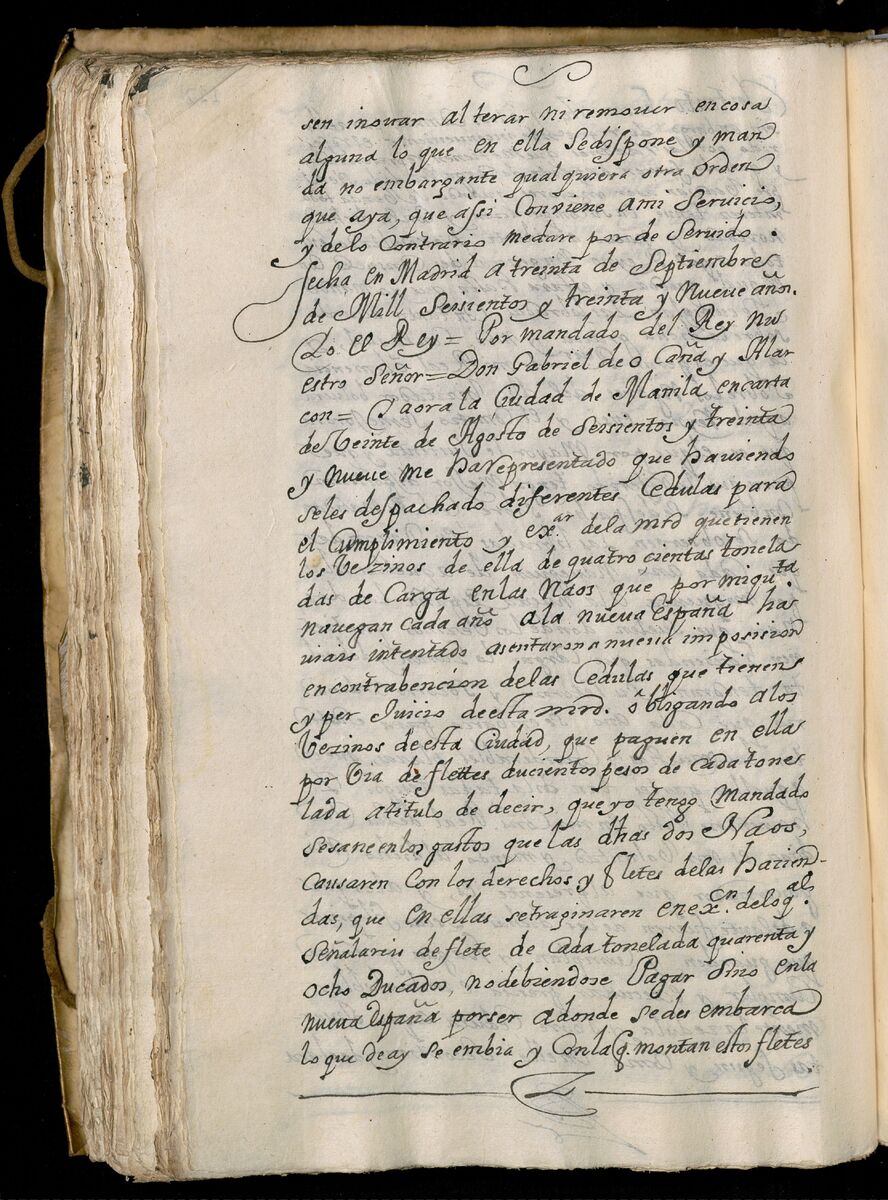 sen inovar alterar ni remover en cosa
alguna lo que en ella se dispone y man
da no embargante qualquiera otra orden
que aya, que assi Conviene ami Servicio,
y delo Contrario medare por de Servido.
fecha en Madrid a treinta de Septiembre
de Mill Seisientos y treinta y Nueve años.
Yo el Rey = Por mandado del Rey Nu
estro Señor = Don Gabriel de o Caña y Alar
con = Yaora la Ciudad de Manila encarta
de Veinte de Agosto de Seisientos y treinta
y Nueve me ha representado que haviendo
seles despachado diferentes Cedulas para
el Cumplimiento y exar. dela mrd que tienen
los Vezinos de ella de quatro cientas tonela
das de Carga enlas Naos que por miquta.
navegan cada año ala nueva España ha
viais intentado asentaron a nueva imposicion
en contrabencion delas Cedulas que tienen
y per Juicio de esta mrd. obligando alos
Vezinos de esta Ciudad, que paguen en ella
por Via de flettes ducientos pesos de cada tone
lada atitulo de decir, que yo tengo Mandado
se saneen los gastos que las dhas dos Naos,
Causaren Con los derechos y fletes delas hacien-
das, que en ellas setraginaren en excn. delo qal.
Señalareis de flete de Cada tonelada quarenta y
ocho Ducados, no debiendose Pagar Sino en la
nueva España por ser adonde se des embarca
lo que de ay se embia y Con la q. montan estos fletes